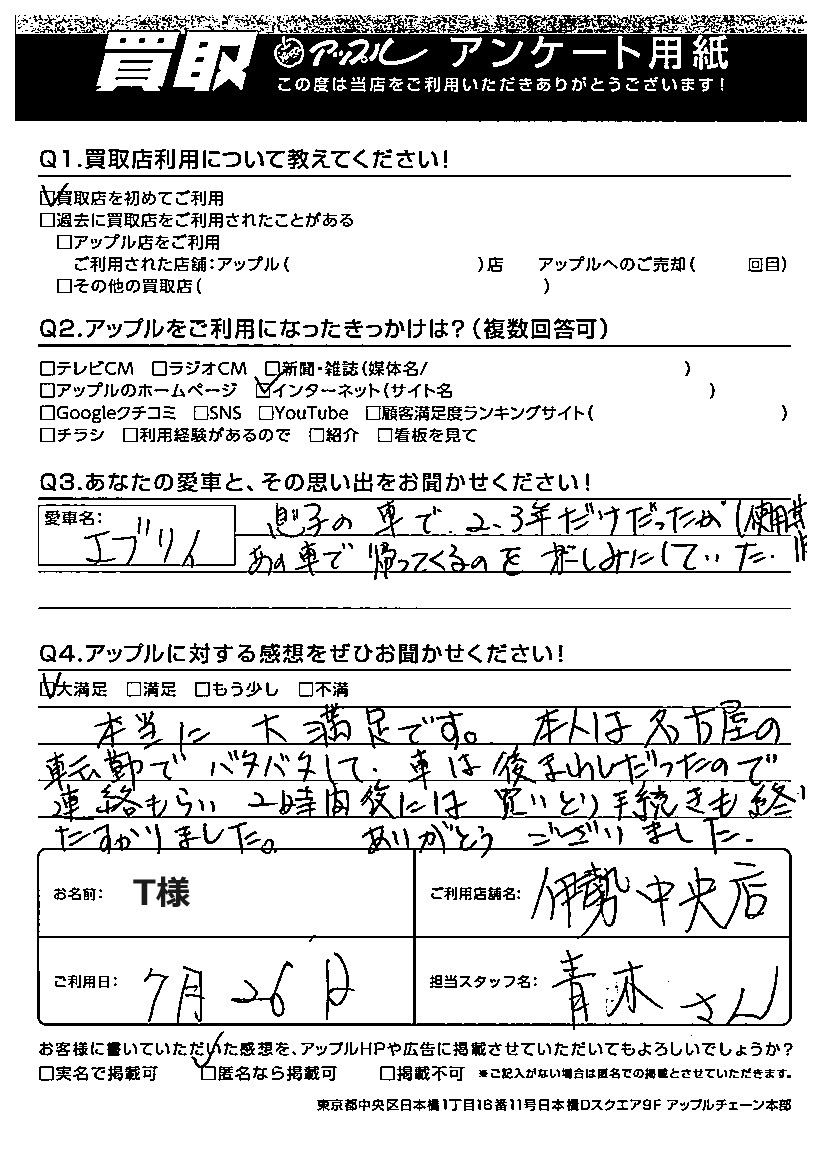 買取 アップル アンケート用紙
この度は当店をご利用いただきありがとうございます!
Q1.買取店利用について教えてください!
☑買取店を初めてご利用
□過去に買取店をご利用されたことがある
□アップル店をご利用
ご利用された店舗:アップル( )店 アップルへのご売却( 回目)
□その他の買取店( )
Q2.アップルをご利用になったきっかけは?(複数回答可)
□テレビCM □ラジオCM □新聞・雑誌(媒体名/ )
□アップルのホームページ ☑インターネット(サイト名 )
□Googleクチコミ □SNS □YouTube □顧客満足度ランキングサイト( )
□チラシ □利用経験があるので □紹介 □看板を見て
Q3.あなたの愛車と、その思い出をお聞かせください!
愛車名: エブリイ
息子の車で、2、3年だけだったが(使用
あの車で帰ってくるのを楽しみにしていた.
Q4.アップルに対する感想をぜひお聞かせください!
☑大満足 □満足 □もう少し □不満
本当に大満足です。本人は名古屋の
転勤でバタバタして、車は後まわしだったので
連絡もらい2時間後には買いとり手続きも終
たすかりました。ありがとうございました.
お名前: T様 ご利用店舗名: 伊勢中央店
ご利用日: 7月26日 担当スタッフ名: 青木さん
お客様に書いていただいた感想を、アップルHPや広告に掲載させていただいてもよろしいでしょうか?
□実名で掲載可 ☑匿名なら掲載可 □掲載不可 ※ご記入がない場合は匿名での掲載とさせていただきます。
東京都中央区日本橋1丁目16番11号日本橋Dスクエア9F アップルチェーン本部